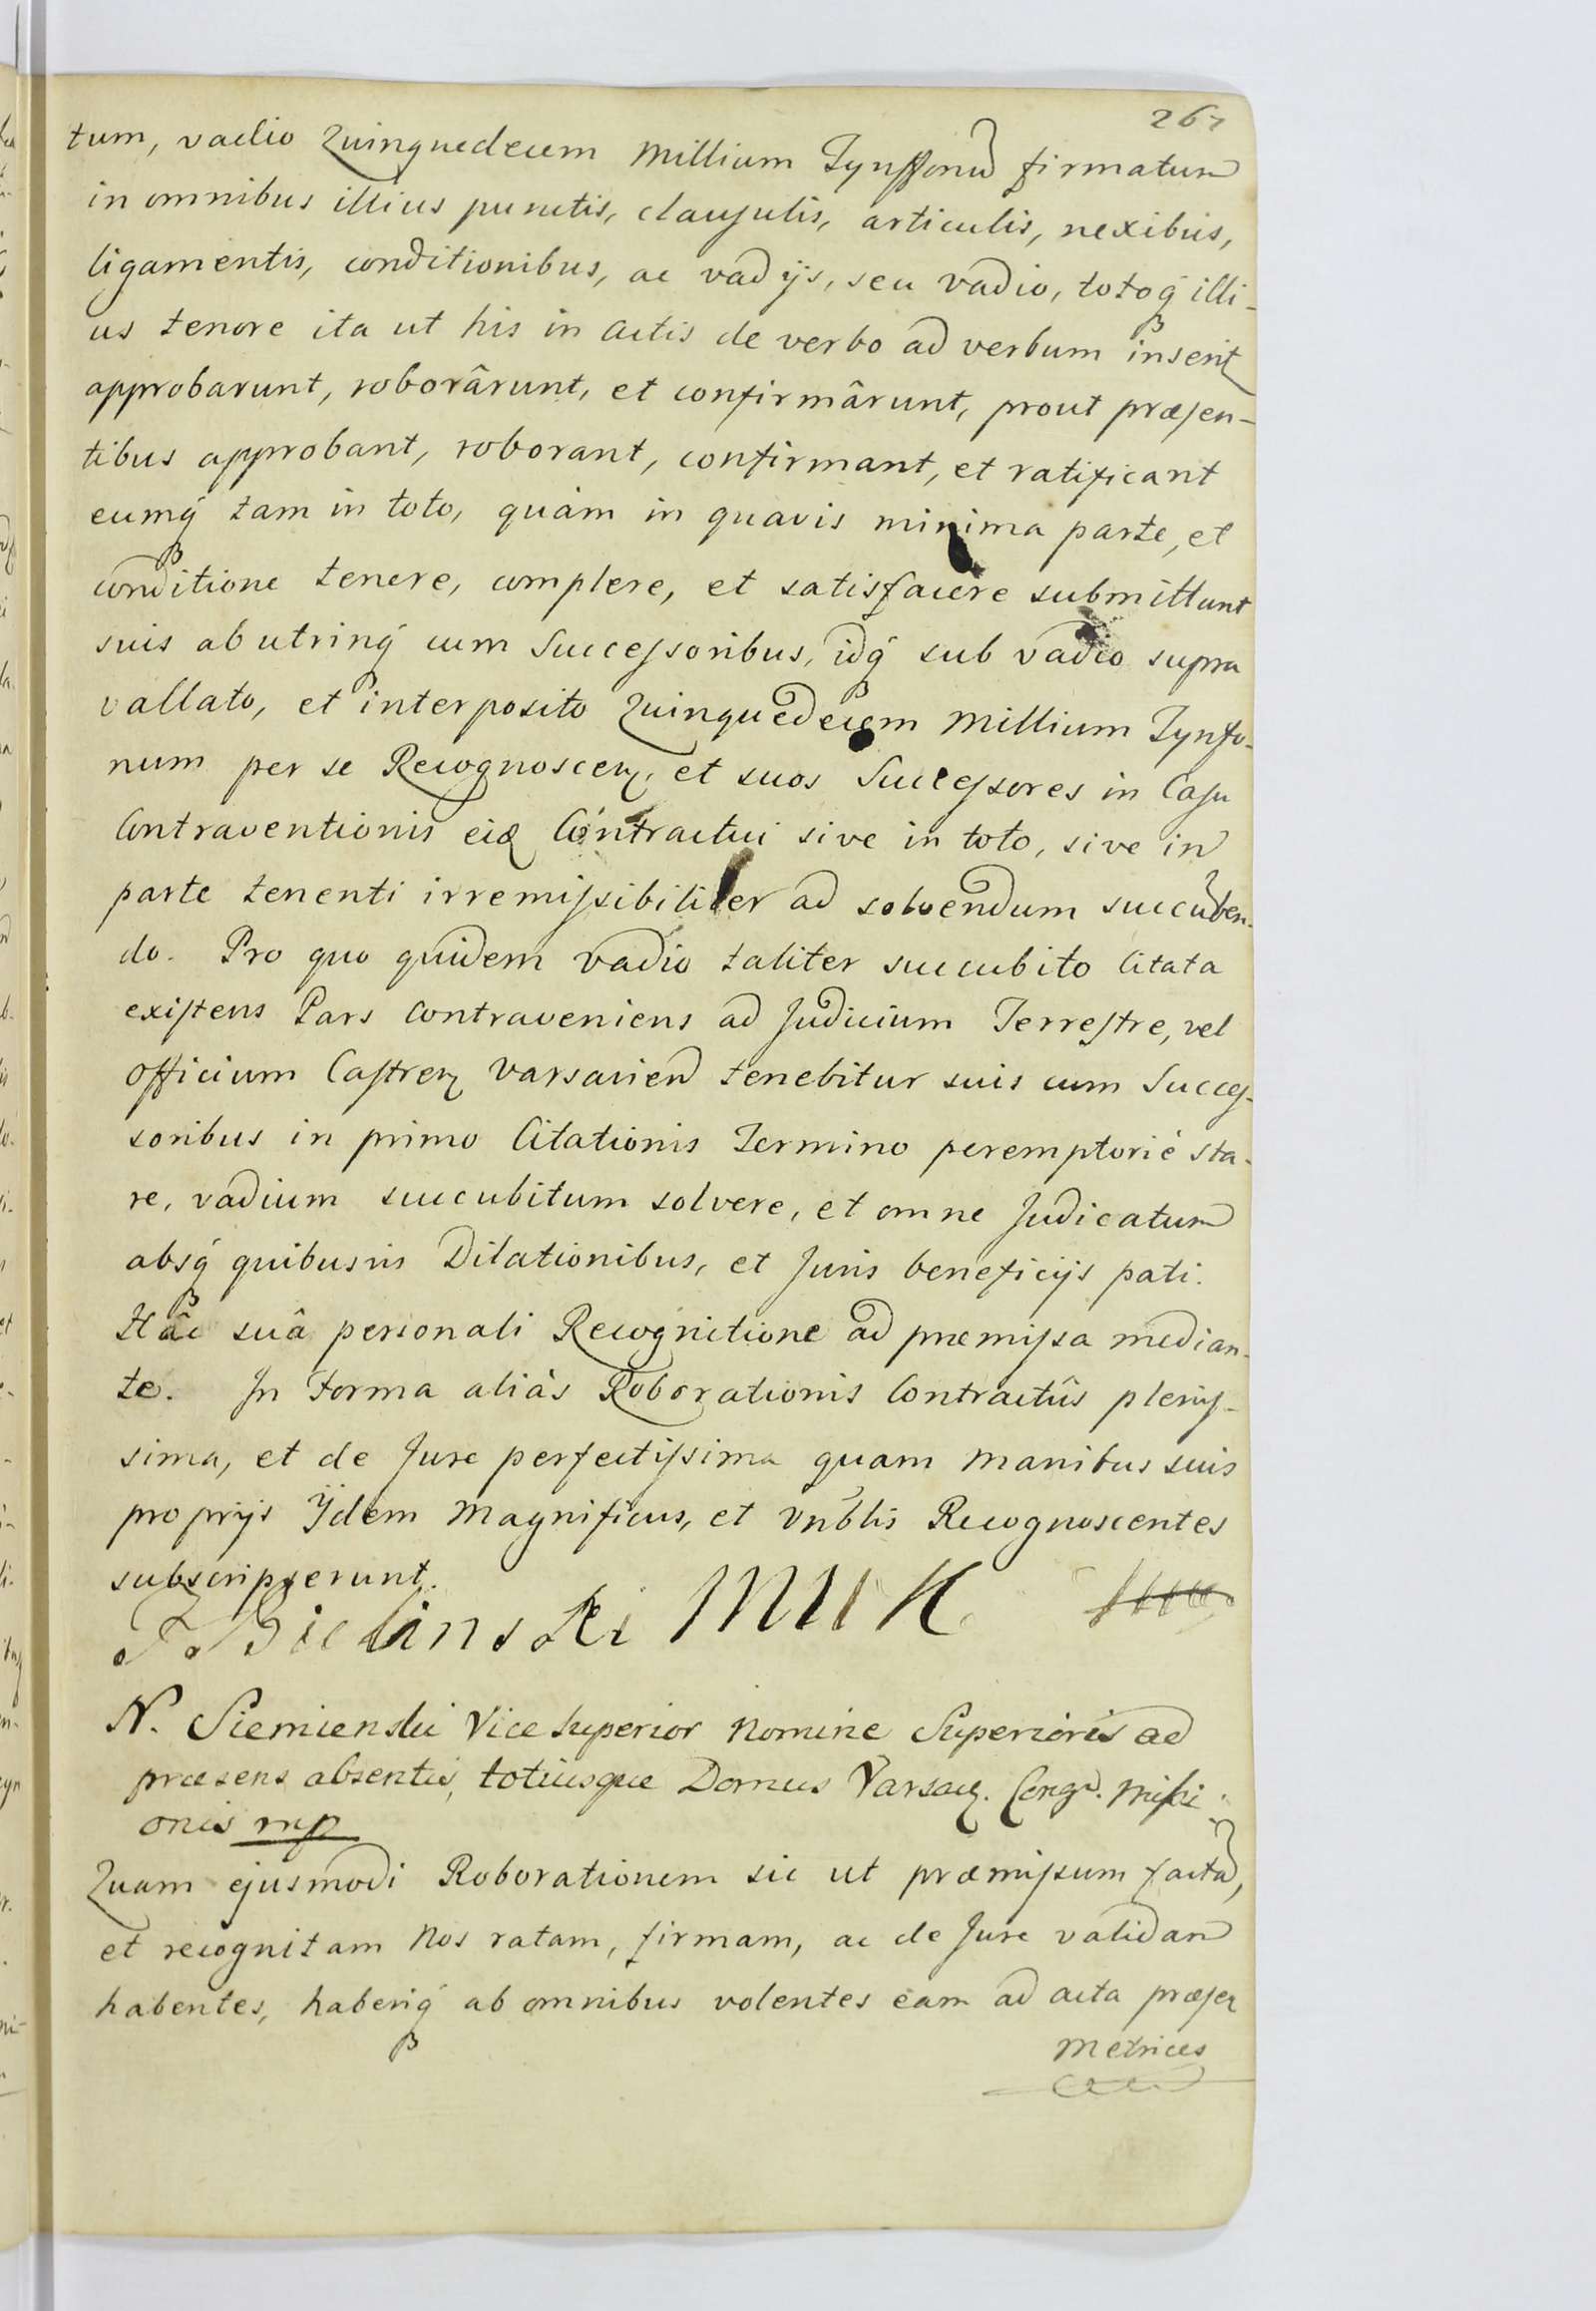 267
tum, vadio Quinquedecem Millium Tynffonũ firmatum
in omnibus illius punctis, clausulis, articulis, nexibus,
ligamentis, conditionibus, ac vadijs, seu vadio, totoq́ illi-
us tenore ita ut his in Actis de verbo ad verbum inserit
approbarunt, roborârunt, et confirmârunt, prout præsen-
tibus approbant, roborant, confirmant, et ratificant
eumq́ tam in toto, quàm in quavis minima parte, et
conditione tenere, complere, et satisfacere submittunt
suis ab utrinq́ cum Successoribus, idq́ sub vadio supra
vallato, et interposito Quinquedecem Millium Tynfo-
num per se Recognoscen, et suos Successores in Casu
Contraventionis eid Contractui sive in toto, sive in
parte tenenti irremissibiliter ad solvendum succũben-
do. Pro quo quidem vadio taliter succubito Citata
existens Pars Contraveniens ad Judicium Terrestre, vel
Officium Castren Varsavien tenebitur suis cum Succes-
soribus in primo Citationis Termino peremptoriè sta-
re, vadium succubitum solvere, et omne Judicatum
absq́ quibusvis Dilationibus, et Juris beneficijs pati.
Hâc suâ personali Recognitione ad præmissa median-
te. In Forma aliàs Roborationis Contractûs plenis-
sima, et de Jure perfectissima quam Manibus suis
proprijs Ijdem Magnificus, et Vnblis Recognoscentes
subscripserunt.
F. Bielinski MWK
N. Siemienski Vice Superior Nomine Superioris ad
præsens absentis, totiusque Domus Varsav. Congr. Missi
onis mp
Quam ejusmodi Roborationem sic ut præmissum factã,
et recognitam Nos ratam, firmam, ac de Jure validam
habentes, haberiq́ ab omnibus volentes eam ad acta præsen
Metrices